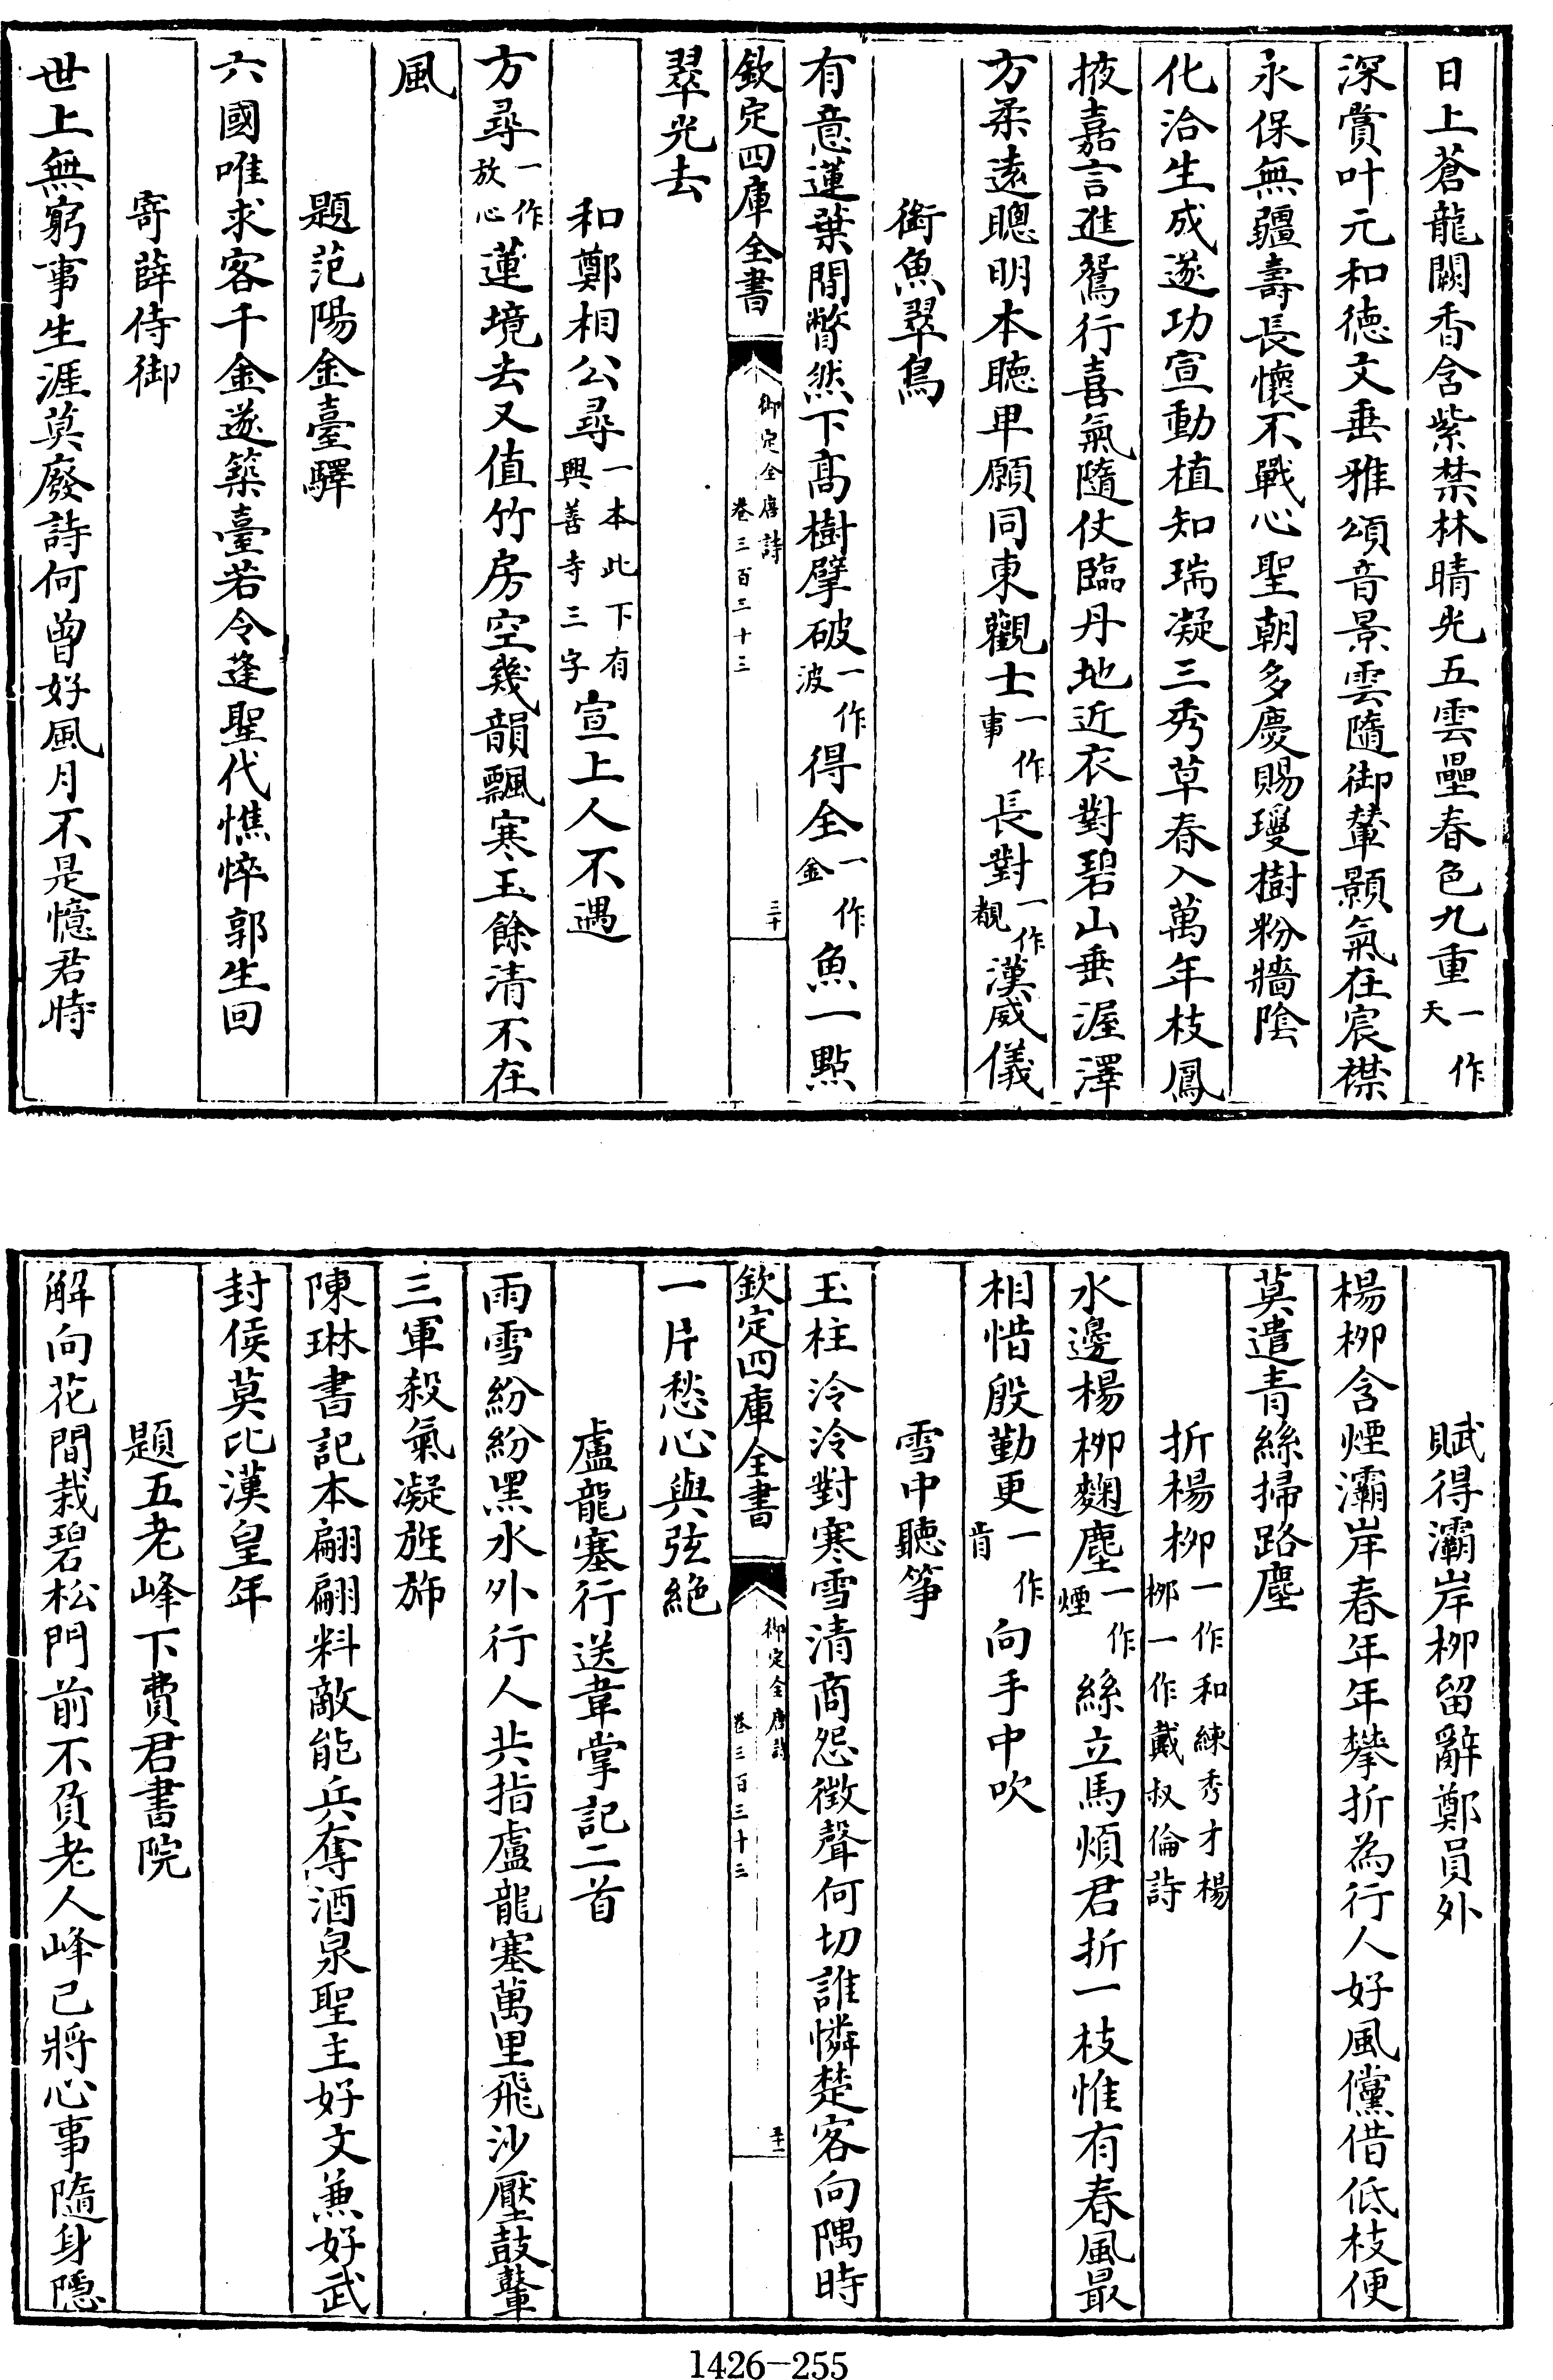 日上蒼龍闕香含紫禁林晴光五雲疊春色九重一作天
深賞叶元和德文垂雅頌音景雲隨御輦顥氣在宸襟
永保無疆壽長懷不戰心聖朝多慶賜瓊樹粉牆陰
化洽生成遂功宣動植知瑞凝三秀草春入萬年枝鳳
掖嘉言進鴛行喜氣隨仗臨丹地近衣對碧山垂渥澤
方柔遠聰明本聽卑願同東觀士一作事長對一作覩漢威儀
銜魚翠鳥
有意蓮葉間瞥然下高樹擘破一作波得全一作金魚一點
欽定四庫全書 御定全唐詩 卷三百三十三 三十
翠光去
和鄭相公尋一本此下有興善寺三字宣上人不遇
方尋一作放心蓮境去又值竹房空幾韻飄寒玉餘清不在
風
題范陽金臺驛
六國唯求客千金遂築臺若令逢聖代憔悴郭生回
寄薛侍御
世上無窮事生涯莫廢詩何曾好風月不是憶君時
賦得灞岸柳留辭鄭員外
楊柳含煙灞岸春年年攀折為行人好風儻借低枝便
莫遣青絲掃路塵
折楊柳一作和練秀才楊柳一作戴叔倫詩
水邊楊柳麴塵一作煙絲立馬煩君折一枝惟有春風最
相惜殷勤更一作肯向手中吹
雪中聽箏
玉柱泠泠對寒雪清商怨徵聲何切誰憐楚客向隅時
欽定四庫全書 御定全唐詩 卷三百三十三 三十一
一片愁心與弦絕
盧龍塞行送韋掌記二首
雨雪紛紛黑水外行人共指盧龍塞萬里飛沙壓鼓鼙
三軍殺氣凝旌斾
陳琳書記本翩翩料敵能兵奪酒泉聖主好文兼好武
封侯莫比漢皇年
題五老峰下費君書院
解向花間栽碧松門前不負老人峰已將心事隨身隱
1426-255